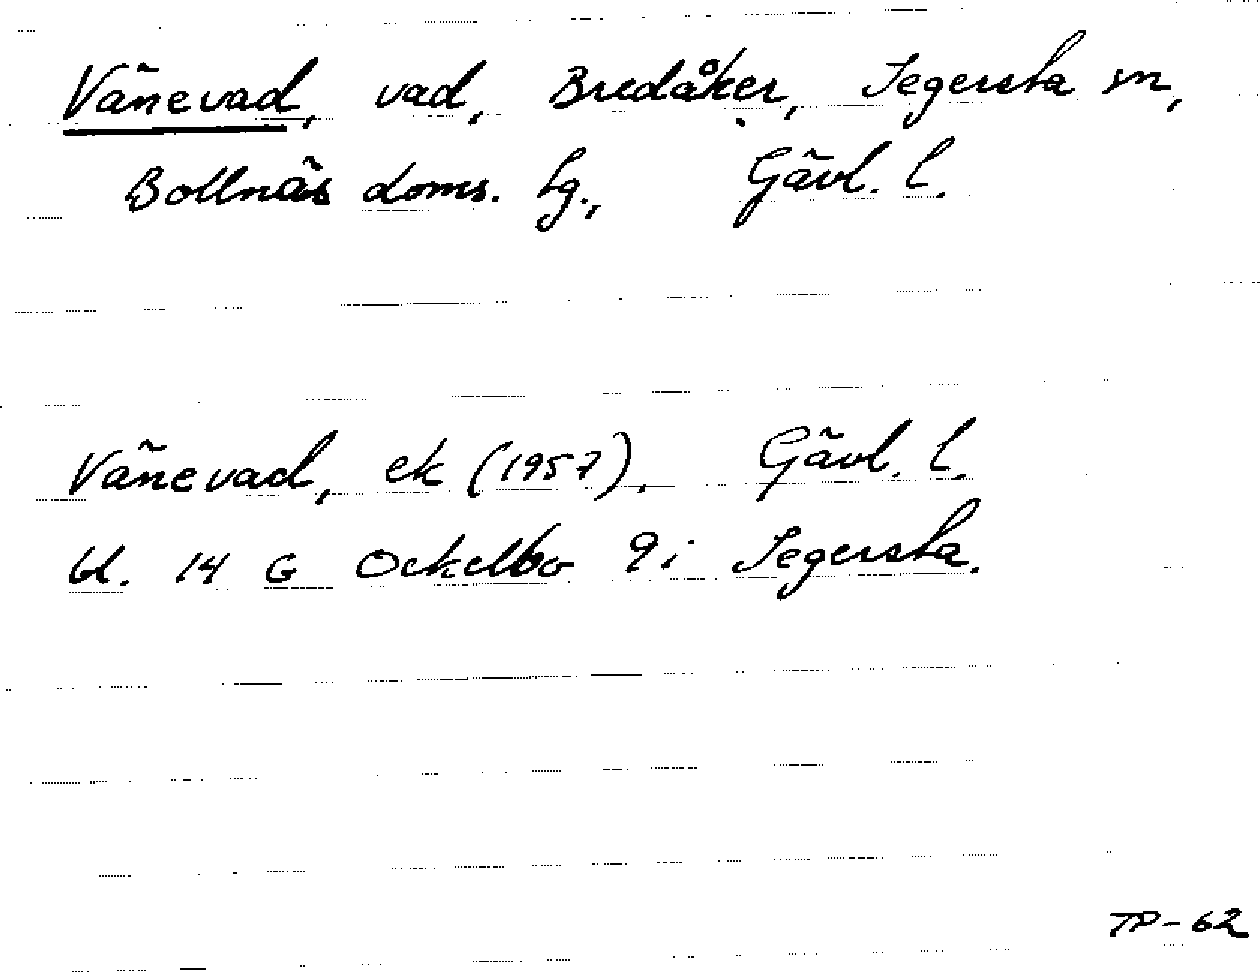 Vänevad, vad, Bredåker, Segersta sn,
Bollnäs doms. hg., Gävl. l.
Vänevad, ek (1957). Gävl. l.
bl. 14 G Ockelbo 9i Segersta.
TP-62